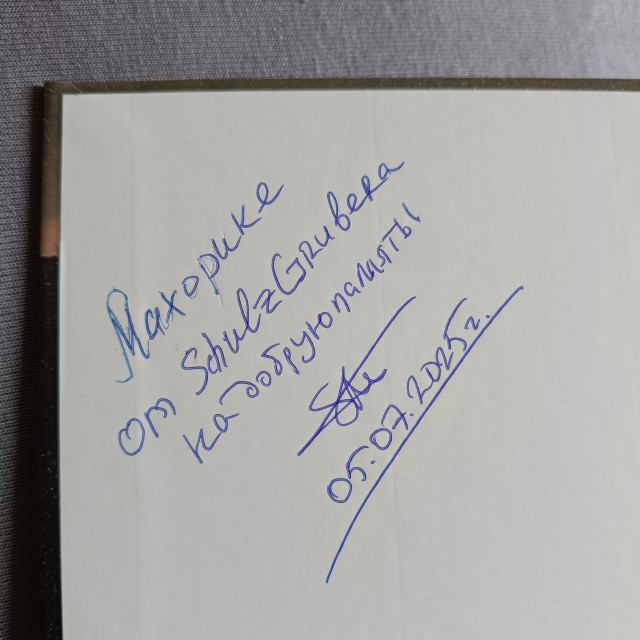 Махорике
от SchulzGruвера
на добрую памяты
05.07.2025г.